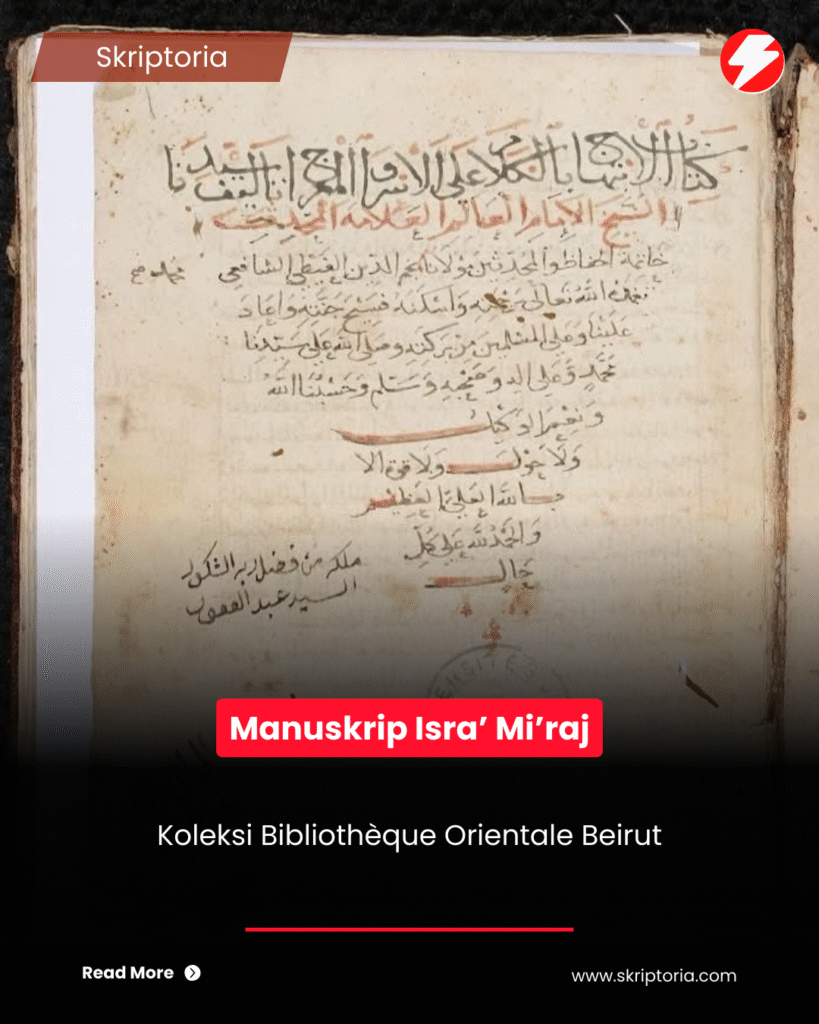 Skriptoria
كتاب الابتهاج بالكلام على الاسرا والمعراج تاليف سيدنا
الشيخ الإمام العالم العلامة
خاتمة الحفاظ والمحدثين مولانا نجم الدين الغيطي الشافعي
تغمده الله تعالى برحمته واسكنه فسيح جنته واعاد
علينا وعلى المسلمين من بركته وصلى الله على سيدنا
محمد وعلى اله وصحبه وسلم وحسبنا الله
ونعم الوكيل
ولا حول ولا قوة الا
بالله العلي العظيم
والحمد لله على كل
حال
ملكه من فضل ربه الشكور
السيد عبد الغفور
Manuskrip Isra’ Mi’raj
Koleksi Bibliothèque Orientale Beirut
Read More
www.skriptoria.com